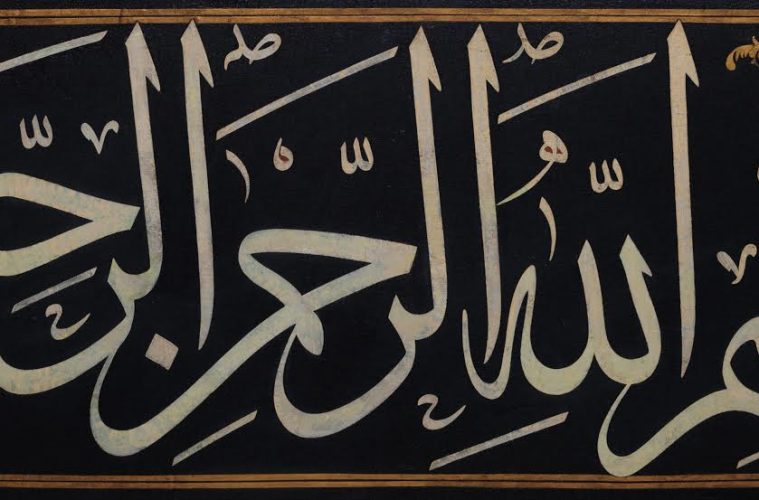 ـمِ اللّٰهِ الرَّحْمٰنِ الرَّحِـ